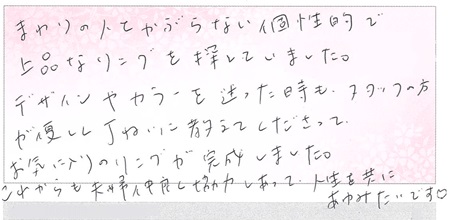 まわりの人とかぶらない個性的で
上品なリングを探していました。
デザインやカラーを迷った時も、スタッフの方
が優しく丁ねいに教えてくださって、
お気に入りのリングが完成しました。
これからも夫婦仲良し協力しあって、人生を共に
あゆみたいです♡